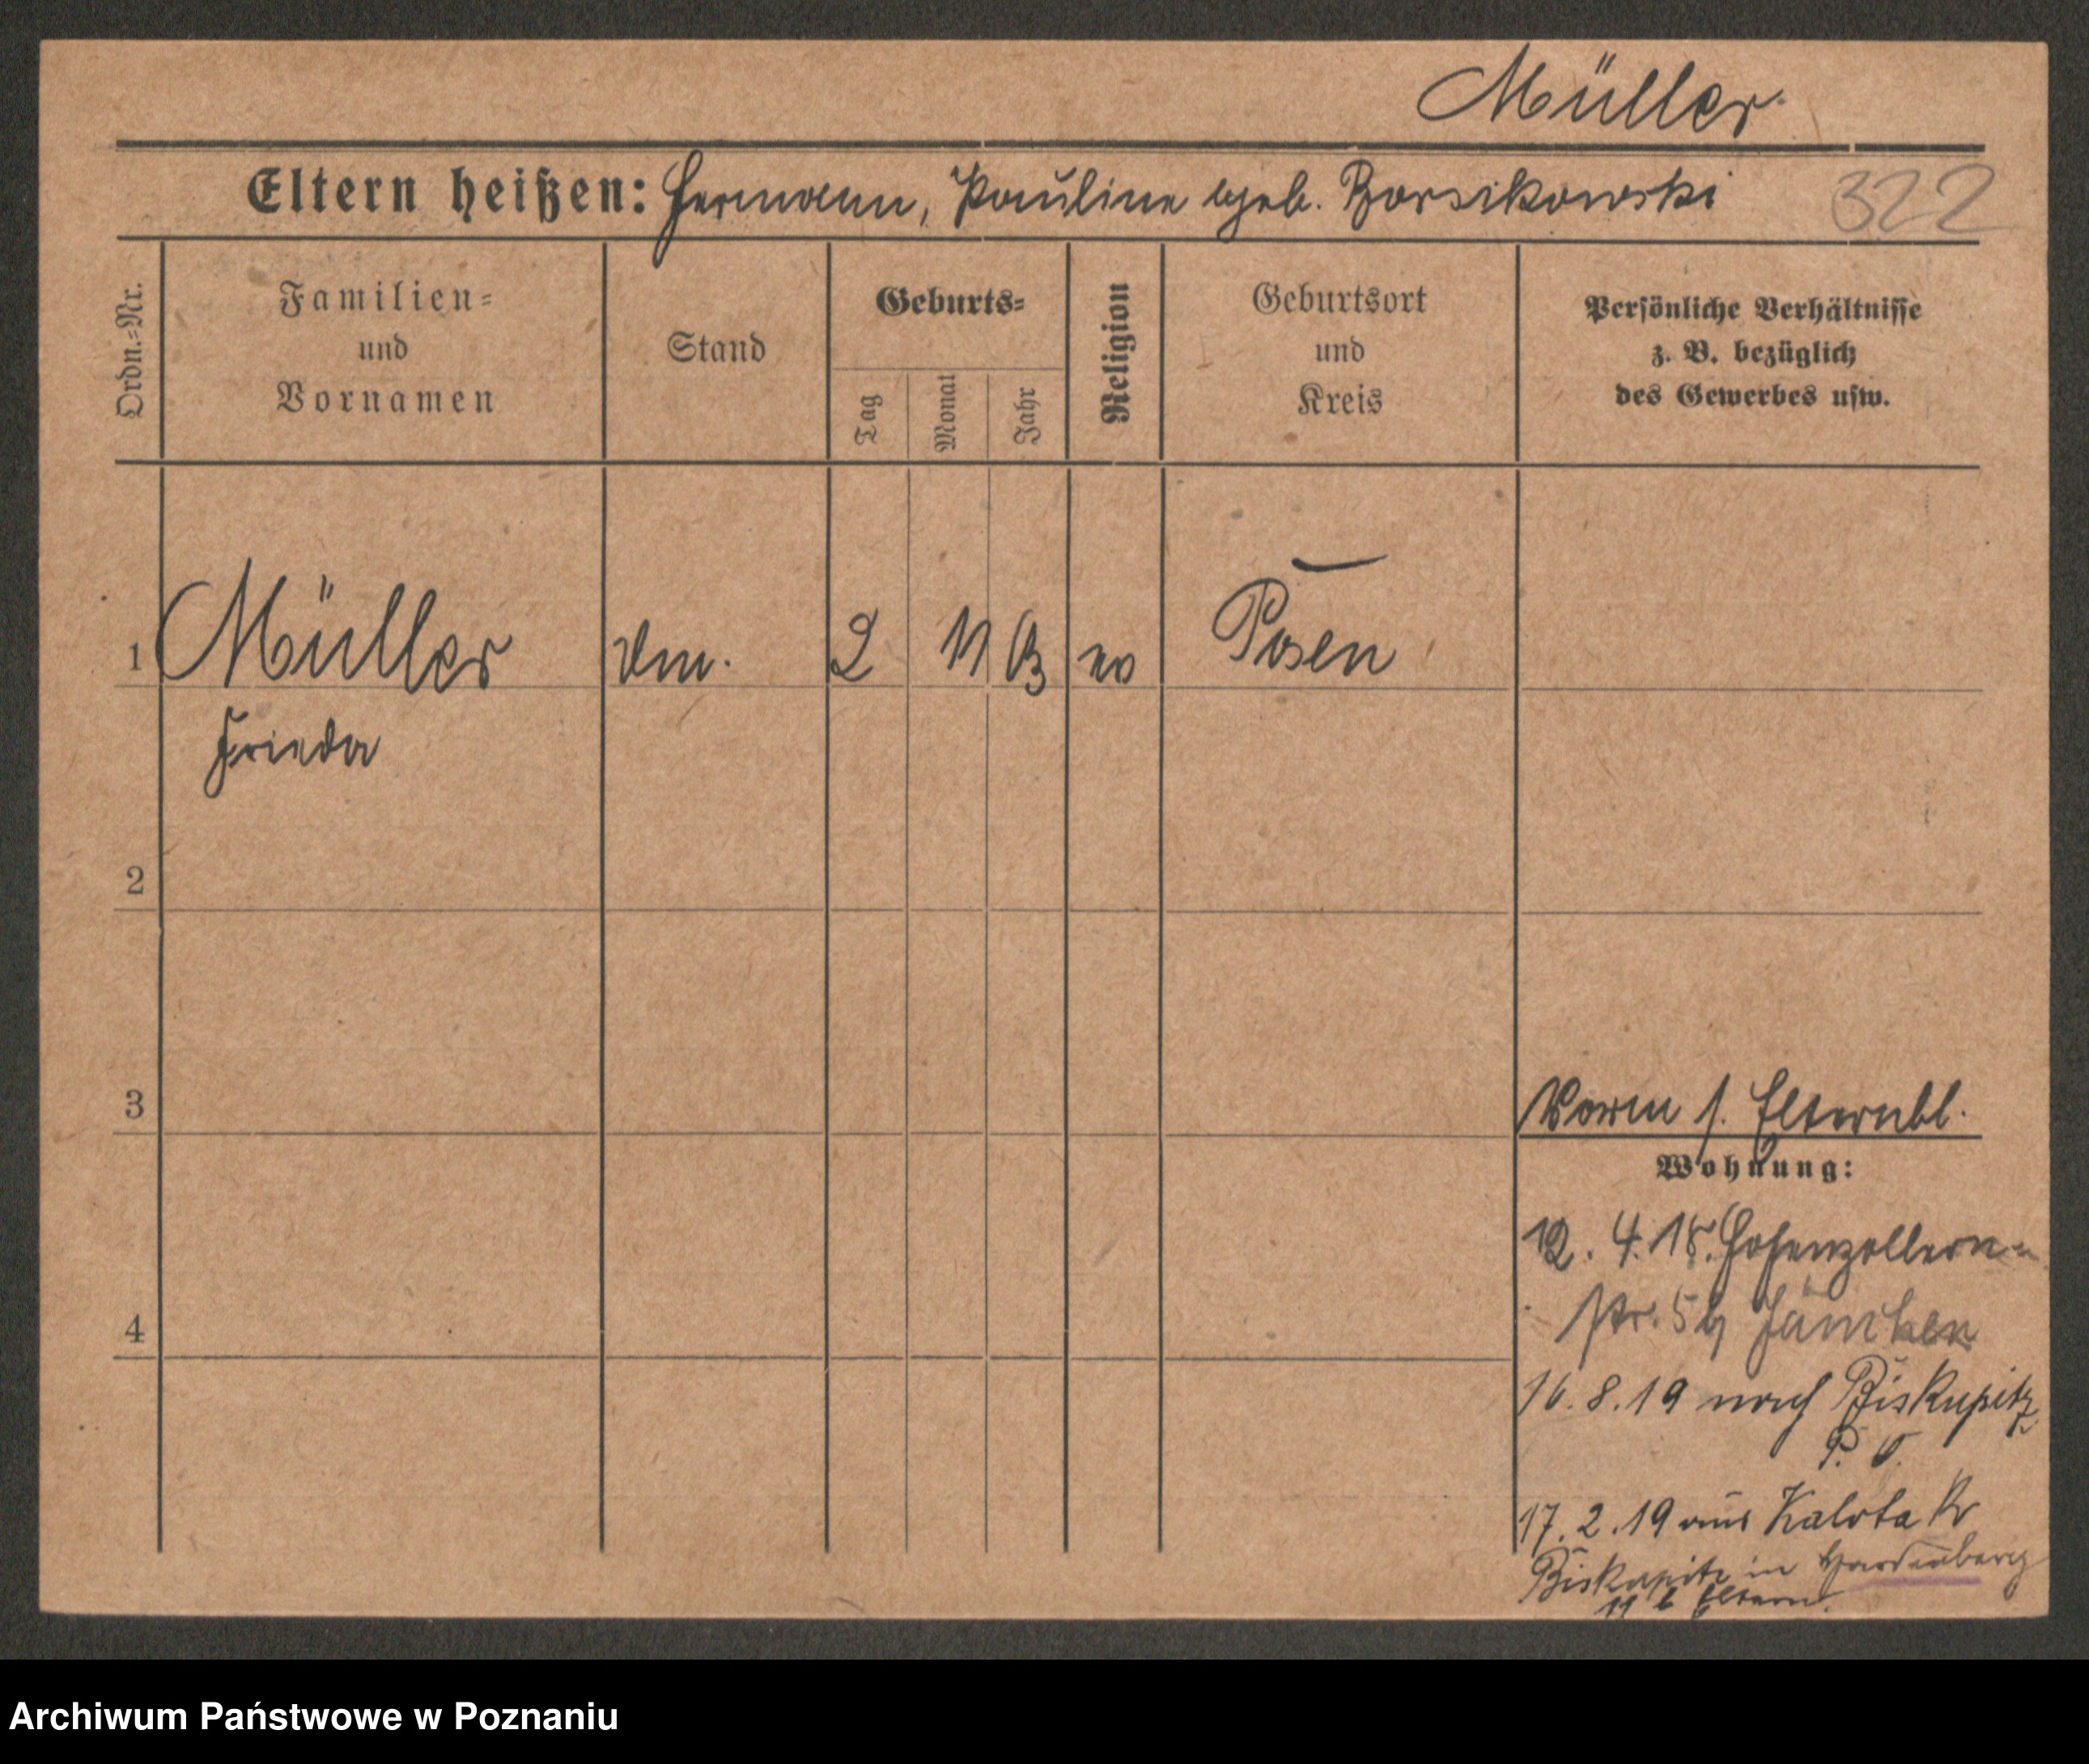 Müller
Eltern heißen: Hermann, Pauline geb. Borsikowski 322
Ordn.=Nr. Familien= und Vornamen Stand Geburts= Tag Monat Jahr Religion Geburtsort und Kreis Persönliche Verhältnisse z. B. bezüglich des Gewerbes usw.
1 Müller 2 11 03 ev Posen
Frieda
2
3 Vorm s. Elternbl.
Wohnung:
12. 4. 18. Hohenzollern=
4 str. 5 b/
16. 8. 19 nach Biskupitz
P. O.
17. 2. 19 aus Kr
Biskupitz in Hardenberg
11 b Eltern.
Archiwum Państwowe w Poznaniu